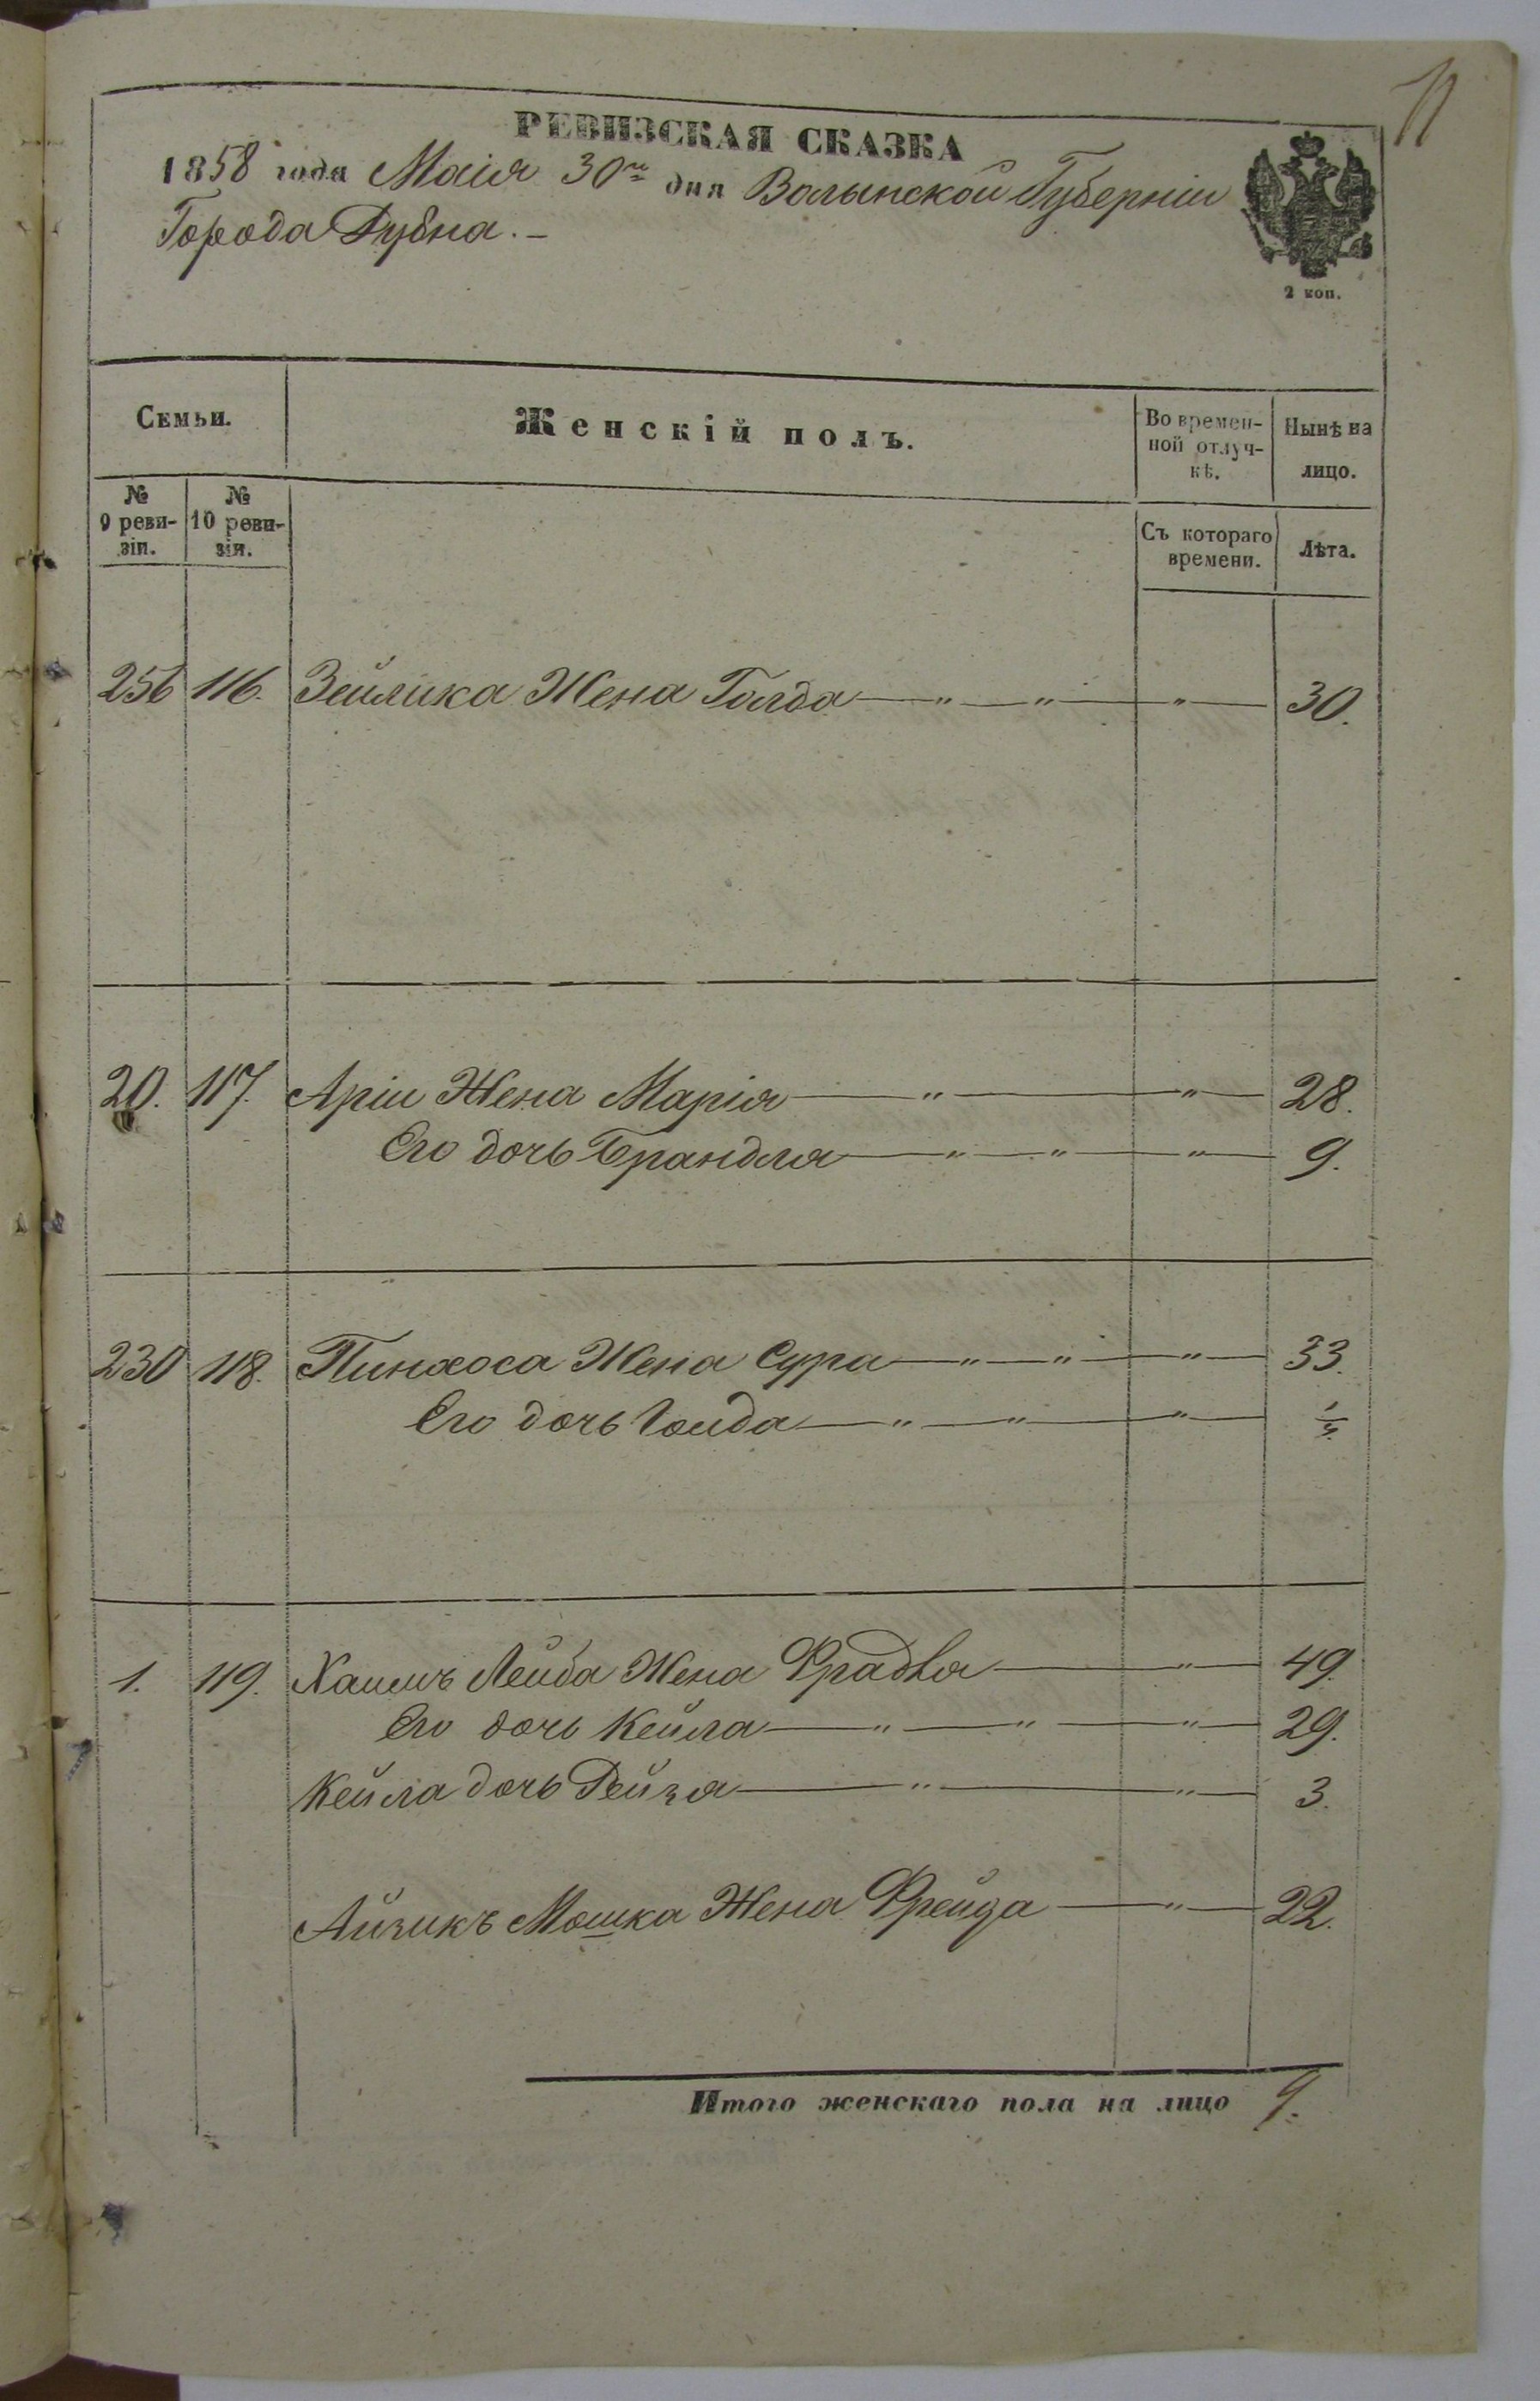 РЕВИЗСКАЯ СКАЗКА
1858 года Маія 30го дня Волынской Губерніи
Города Дубна. –
2 коп.
Семьи.
Женскій полъ.
Во времен-
ной отлуч-
кѣ.
Нынѣ на
лицо.
№
9 реви-
зіи.
№
10 реви-
зіи.
Съ котораго
времени.
Лѣта.
256 116. Зейлика Жена Голда — " — " — " — 30.
20. 117. Аріи Жена Марія — " — " — 28.
Его дочь Брандля — " — " — " — 9.
230 118. Пинхоса Жена Сура — " — " — " — 33.
Его дочь — " — " — " —
1. 119. Хаимъ Лейба Жена Фрадля — " — 49.
Его дочь Кейла — " — " — " — 29.
Кейла дочь Рейзя — " — " — 3.
Айзикъ Мошка Жена Фрейда — " — 22.
Итого женскаго пола на лицо 9.